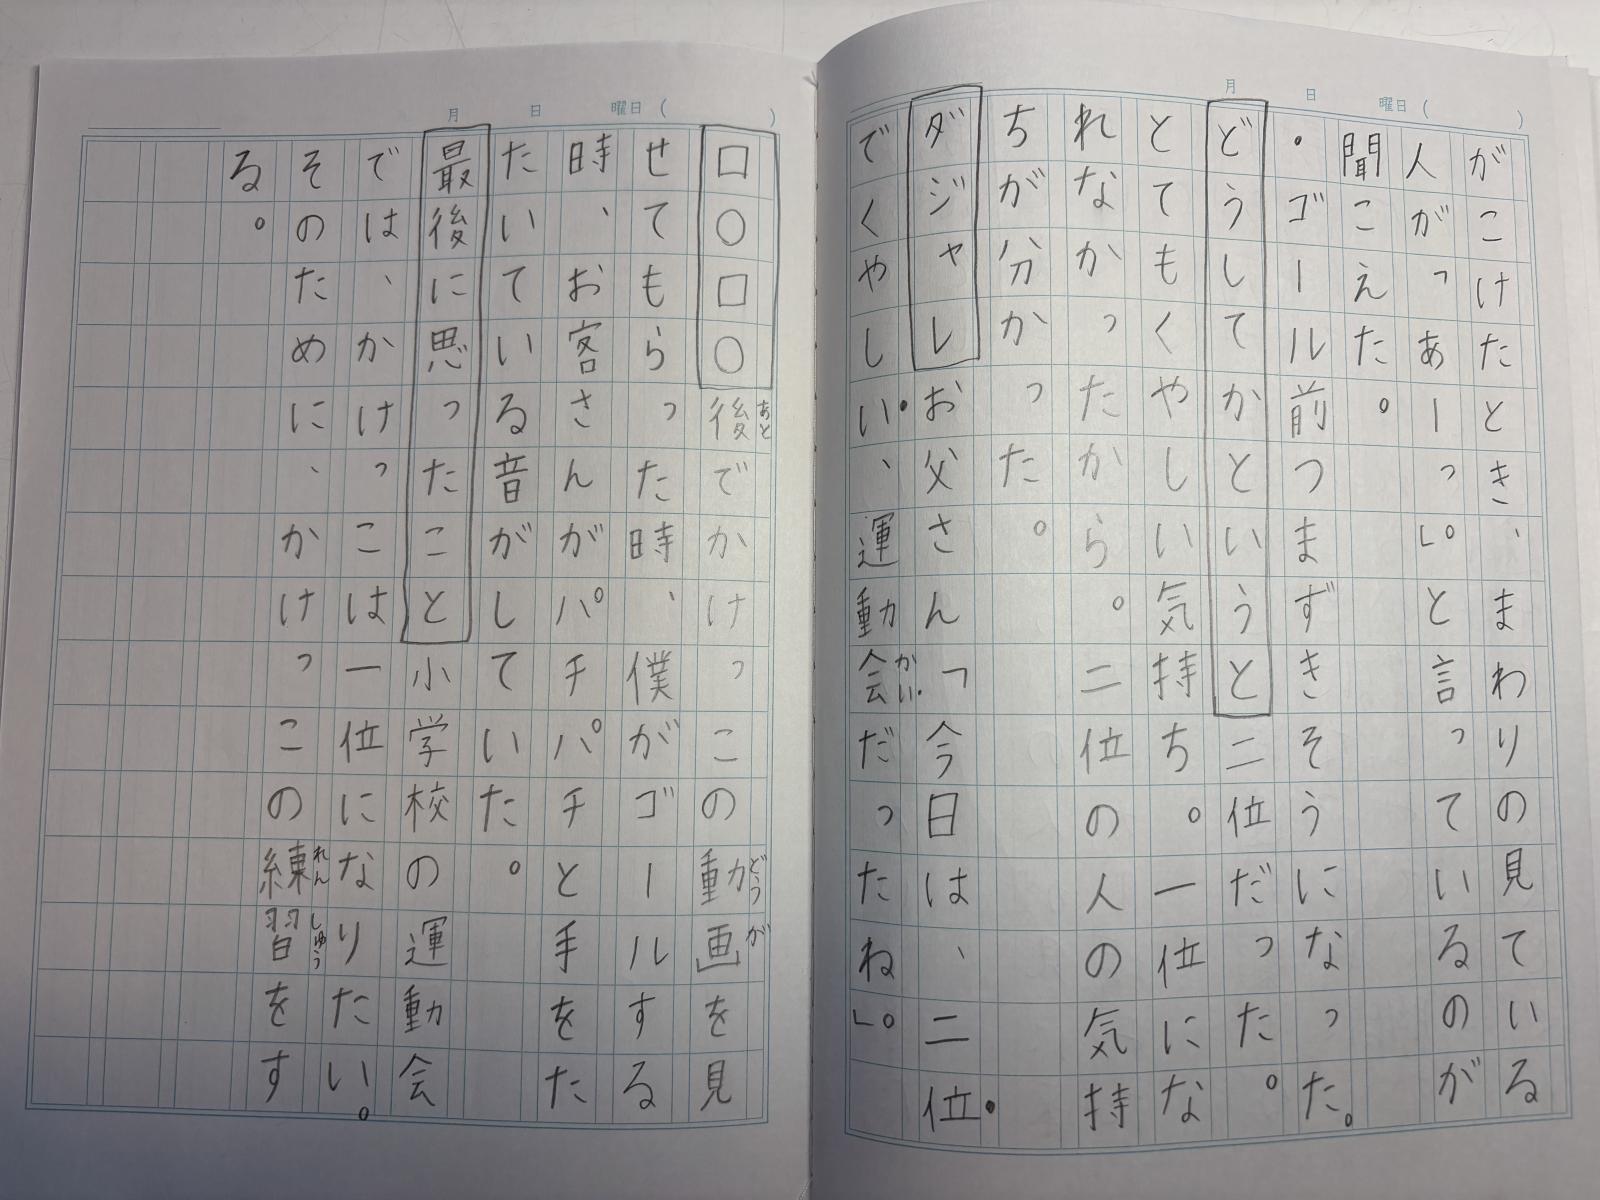 月　日　曜日（　）
がこけたとき、まわりの見ている
人が「あーっ。」と言っているのが
聞こえた。
・ゴール前つまずきそうになった。
どうしてかというと二位だった。
とてもくやしい気持ち。一位にな
れなかったから。二位の人の気持
ちが分かった。
ダジャレお父さん「今日は、二位
でくやしい、運動会だったね。」
がい
月　日　曜日（　）
□○□○後でかけっこの動画を見
あと
どうが
せてもらった時、僕がゴールする
時、お客さんがパチパチと手をた
たいている音がしていた。
最後に思ったこと小学校の運動会
では、かけっこは一位になりたい。
そのために、かけっこの練習をす
れんしゅう
る。